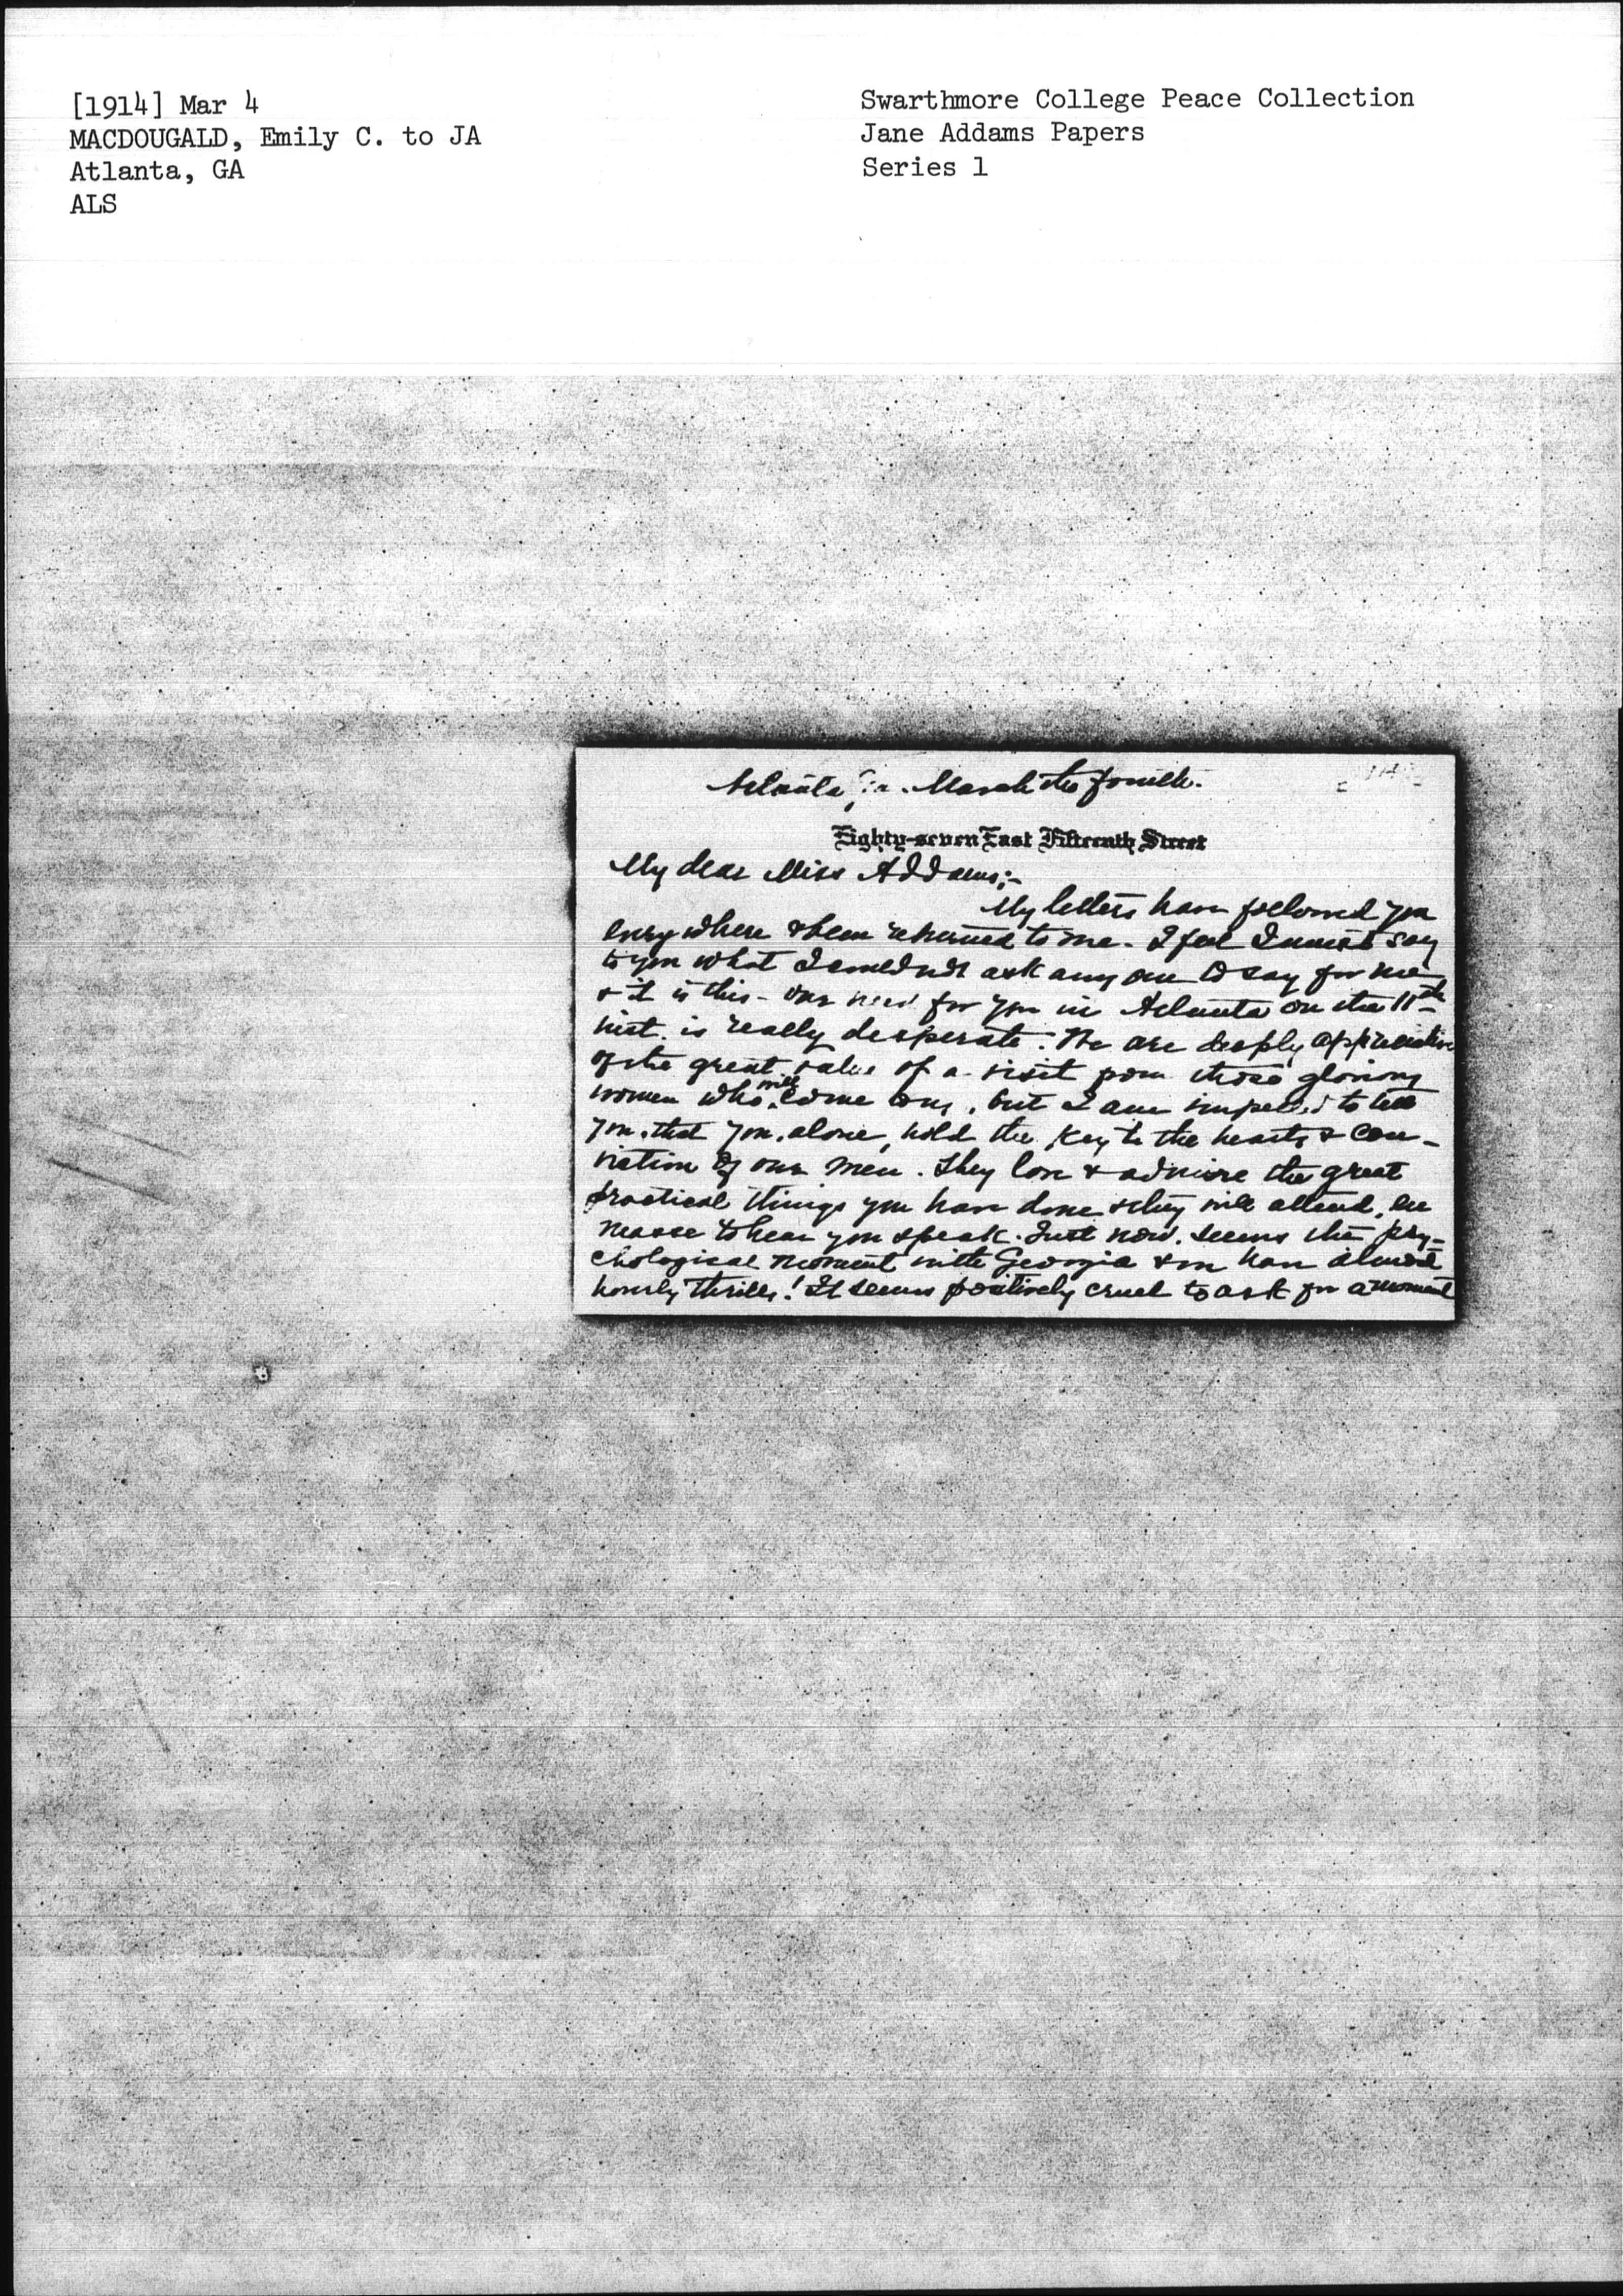 [1914] Mar 4
MACDOUGALD, Emily C. to JA
Atlanta, GA
ALS
Swarthmore College Peace Collection
Jane Addams Papers
Series 1
Atlanta, Ga. March the fourth.
Eighty-seven East Fifteenth Street
My dear Miss Addams;-
My letters have followed you
everywhere & been returned to me. I feel I must say
to you what I could not ask any one to say for me
& it is this - our need for you in Atlanta on the
inst. is really desperate. We are deeply appreciative
of the great value of a visit from those glorious
women who will come , but I am impelled to tell
you, that you, alone, hold the key to the hearts & con-
viction of our men. They love & admire the great
practical things you have done & they will attend, en
masse to hear you speak. Just now, seems the psy-
chological moment with Georgia & we have almost
hourly thrills! It seems positively cruel to ask for a moment